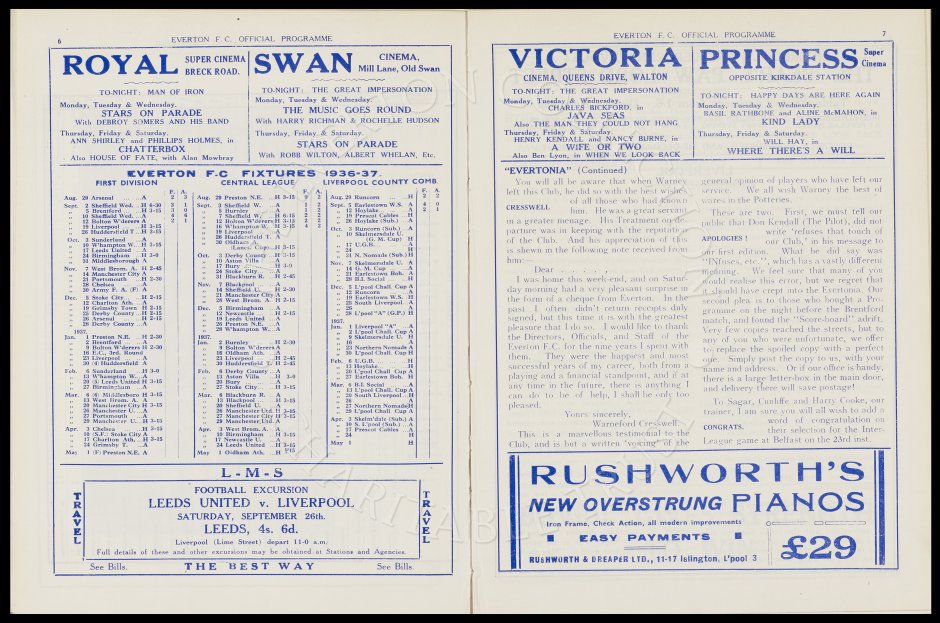 6
EVERTON F.C. OFFICIAL PROGRAMME
ROYAL SUPER CINEMA BRECK ROAD.
TO-NIGHT: MAN OF IRON
Monday, Tuesday & Wednesday.
STARS ON PARADE
With DEBROY SOMERS AND HIS BAND
Thursday, Friday & Saturday.
ANN SHIRLEY and PHILLIPS HOLMES, in
CHATTERBOX
Also HOUSE OF FATE, with Alan Mowbray
SWAN CINEMA, Mill Lane, Old Swan
TO-NIGHT: THE GREAT IMPERSONATION
Monday, Tuesday & Wednesday.
THE MUSIC GOES ROUND
With HARRY RICHMAN & ROCHELLE HUDSON
Thursday, Friday & Saturday.
STARS ON PARADE
With ROBB WILTON, ALBERT WHELAN, Etc.
EVERTON F.C FIXTURES 1936-37.
FIRST DIVISION
F. A.
Aug. 29 Arsenal A 2 3
Sept. 2 Sheffield Wed. H 6-30 3 1
5 Brentford H 3-15 3 0
10 Sheffield Wed. A 4 6
12 Bolton W'derers A 2 1
19 Liverpool H 3-15
26 Huddersfield T. H 3-15
Oct. 3 Sunderland A
10 W'hampton W. H 3-15
17 Leeds United A
24 Birmingham H 3-0
31 Middlesborough A
Nov. 7 West Brom. A. H 2-45
14 Manchester City A
21 Portsmouth H 2-30
28 Chelsea A
30 Army F. A. (F) A
Dec. 5 Stoke City H 2-15
12 Charlton Ath. A
19 Grimsby Town H 2-15
25 Derby County H 2-15
26 Arsenal H 2-15
28 Derby County A
1937.
Jan. 1 Preston N.E. H 2-30
2 Brentford A
9 Bolton W'derers H 2-30
16 E.C., 3rd. Round
23 Liverpool A
30 (4) Huddersfield A
Feb. 6 Sunderland H 3-0
13 W'hampton W. A
20 (5) Leeds United H 3-15
27 Birmingham A
Mar. 6 (6) Middlesboro H 3-15
13 West Brom. A. A
20 Manchester City H 3-15
26 Manchester U. A
27 Portsmouth A
29 Manchester U. H 3-15
Apr. 3 Chelsea H 3-15
10 (S.F.) Stoke City A
17 Charlton Ath. H 3-15
24 Grimsby T. A
May 1 (F) Preston N.E. A
CENTRAL LEAGUE
F. A.
Aug. 29 Preston N.E. H 3-15
Sept. 3 Sheffield W. A
5 Burnley A
7 Sheffield W. H 6-15
12 Bolton W'derers H 3-15
16 W'hampton W. H 3-15
19 Liverpool A
26 Huddersfield T. A
30 Oldham A
(Lancs. Cup) H 3-15
Oct. 3 Derby County H 3-15
10 Aston Villa A
17 Bury H 3-0
24 Stoke City A
31 Blackburn R. H 2-45
Nov. 7 Blackpool A
14 Sheffield U. H 2-30
21 Manchester City A
28 West Brom. A. H 2-15
Dec. 5 Birmingham A
12 Newcastle H 2-15
19 Leeds United A
26 Preston N.E. A
28 W'hampton W. A
1937.
Jan. 2 Burnley H 2-30
9 Bolton W'derers A
16 Oldham Ath. A
23 Liverpool H 2-45
30 Huddersfield T. H 2-45
Feb. 6 Derby County A
13 Aston Villa H 3-0
20 Bury A
27 Stoke City H 3-15
Mar. 6 Blackburn R. A
13 Blackpool H 3-15
20 Sheffield U. A
26 Manchester Utd H 3-15
27 Manchester City H 3-15
29 Manchester Utd A
Apr. 3 West Brom. A. A
10 Birmingham H 3-15
17 Newcastle U. A
24 Leeds United H 3-15
May 1 Oldham Ath. H 3-15
LIVERPOOL COUNTY COMB.
F. A.
Aug. 29 Runcorn H 2 3
Sept. 5 Earlestown W.S. A 1 0
12 Hoylake H 2 1
19 Prescot Cables H
26 Hoylake (Sub.) A
26 B.I. Social A
Oct. 3 Runcorn (Sub.) A
10 Skelmersdale U.
(G. M. Cup) H
17 U.G.B. H
24 H
31 N. Nomads (Sub.) H
Nov. 7 Skelmersdale U. A
14 G. M. Cup A
21 Earlestown Boh. A
28 B.I. Social H
Dec. 5 L'pool Chall. Cup H
12 Runcorn A
19 Earlestown W.S. H
25 South Liverpool A
26 H
28 L'pool "A" (G.P.) H
1937.
Jan. 1 Liverpool "A" A
2 L'pool Chall. Cup A
9 Skelmersdale U. H
16 H
23 Northern Nomads A
30 L'pool Chall. Cup H
Feb. 6 U.G.B. H
13 Hoylake A
20 L'pool Chall. Cup A
27 Earlestown Boh. H
Mar. 6 B.I. Social A
13 L'pool Chall. Cup A
20 South Liverpool H
26 A
27 Northern Nomads H
29 L'pool Chall. Cup A
Apr. 3 Skelm'dale (Sub.) H
10 S. L'pool (Sub.) A
17 Prescot Cables A
24 H
May 1 H
L-M-S
TRAVEL
FOOTBALL EXCURSION
LEEDS UNITED v. LIVERPOOL
SATURDAY, SEPTEMBER 26th.
LEEDS, 4s. 6d.
Liverpool (Lime Street) depart 11-0 a.m.
Full details of these and other excursions may be obtained at Stations and Agencies.
TRAVEL
See Bills. THE BEST WAY See Bills.
EVERTON F.C. OFFICIAL PROGRAMME
7
VICTORIA
CINEMA, QUEENS DRIVE, WALTON
TO-NIGHT: THE GREAT IMPERSONATION
Monday, Tuesday & Wednesday.
CHARLES BICKFORD, in
JAVA SEAS
Also THE MAN THEY COULD NOT HANG
Thursday, Friday & Saturday.
HENRY KENDALL and NANCY BURNE, in
A WIFE OR TWO
Also Ben Lyon, in WHEN WE LOOK BACK
PRINCESS Super Cinema
OPPOSITE KIRKDALE STATION
TO-NIGHT: HAPPY DAYS ARE HERE AGAIN
Monday, Tuesday & Wednesday.
BASIL RATHBONE and ALINE McMAHON, in
KIND LADY
Thursday, Friday & Saturday.
WILL HAY, in
WHERE THERE'S A WILL
"EVERTONIA" (Continued)
You will all be aware that when Warney
left this Club, he did so with the best wishes
of all those who had known
CRESSWELL him. He was a great servant
in a greater menage. His Treatment on de-
parture was in keeping with the reputation
of the Club. And his appreciation of this
is shewn in the following note received from
him:—
Dear
I was home this week-end, and on Satur-
day morning had a very pleasant surprise in
the form of a cheque from Everton. In the
past I often didn't return receipts duly
signed, but this time it is with the greatest
pleasure that I do so. I would like to thank
the Directors, Officials, and Staff of the
Everton F.C. for the nine years I spent with
them. They were the happiest and most
successful years of my career, both from a
playing and a financial standpoint, and if at
any time in the future, there is anything I
can do to be of help, I shall be only too
pleased.
Yours sincerely,
Warneford Cresswell.
This is a marvellous testimonial to the
Club, and is but a written "voicing" of the
general opinion of players who have left our
service. We all wish Warney the best of
wares in the Potteries.
These are two. First, we must tell our
public that Don Kendall (The Pilot), did not
write 'refuses that touch of
APOLOGIES ! our Club,' in his message to
our first edition. What he did say was
"Pulses, etc.", which has a vastly different
meaning. We feel sure that many of you
would realise this error, but we regret that
it should have crept into the Evertonia. Our
second plea is to those who bought a Pro-
gramme on the night before the Brentford
match, and found the "Score-board" adrift.
Very few copies reached the streets, but to
any of you who were unfortunate, we offer
to replace the spoiled copy with a perfect
one. Simply post the copy to us, with your
name and address. Or if our office is handy,
there is a large letter-box in the main door,
and delivery there will save postage!
To Sagar, Cunliffe and Harry Cooke, our
trainer, I am sure you will all wish to add a
word of congratulation on
CONGRATS. their selection for the Inter-
League game at Belfast on the 23rd inst.
RUSHWORTH'S
NEW OVERSTRUNG PIANOS
Iron Frame, Check Action, all modern improvements
EASY PAYMENTS
£29
RUSHWORTH & DREAPER LTD., 11-17 Islington, L'pool 3